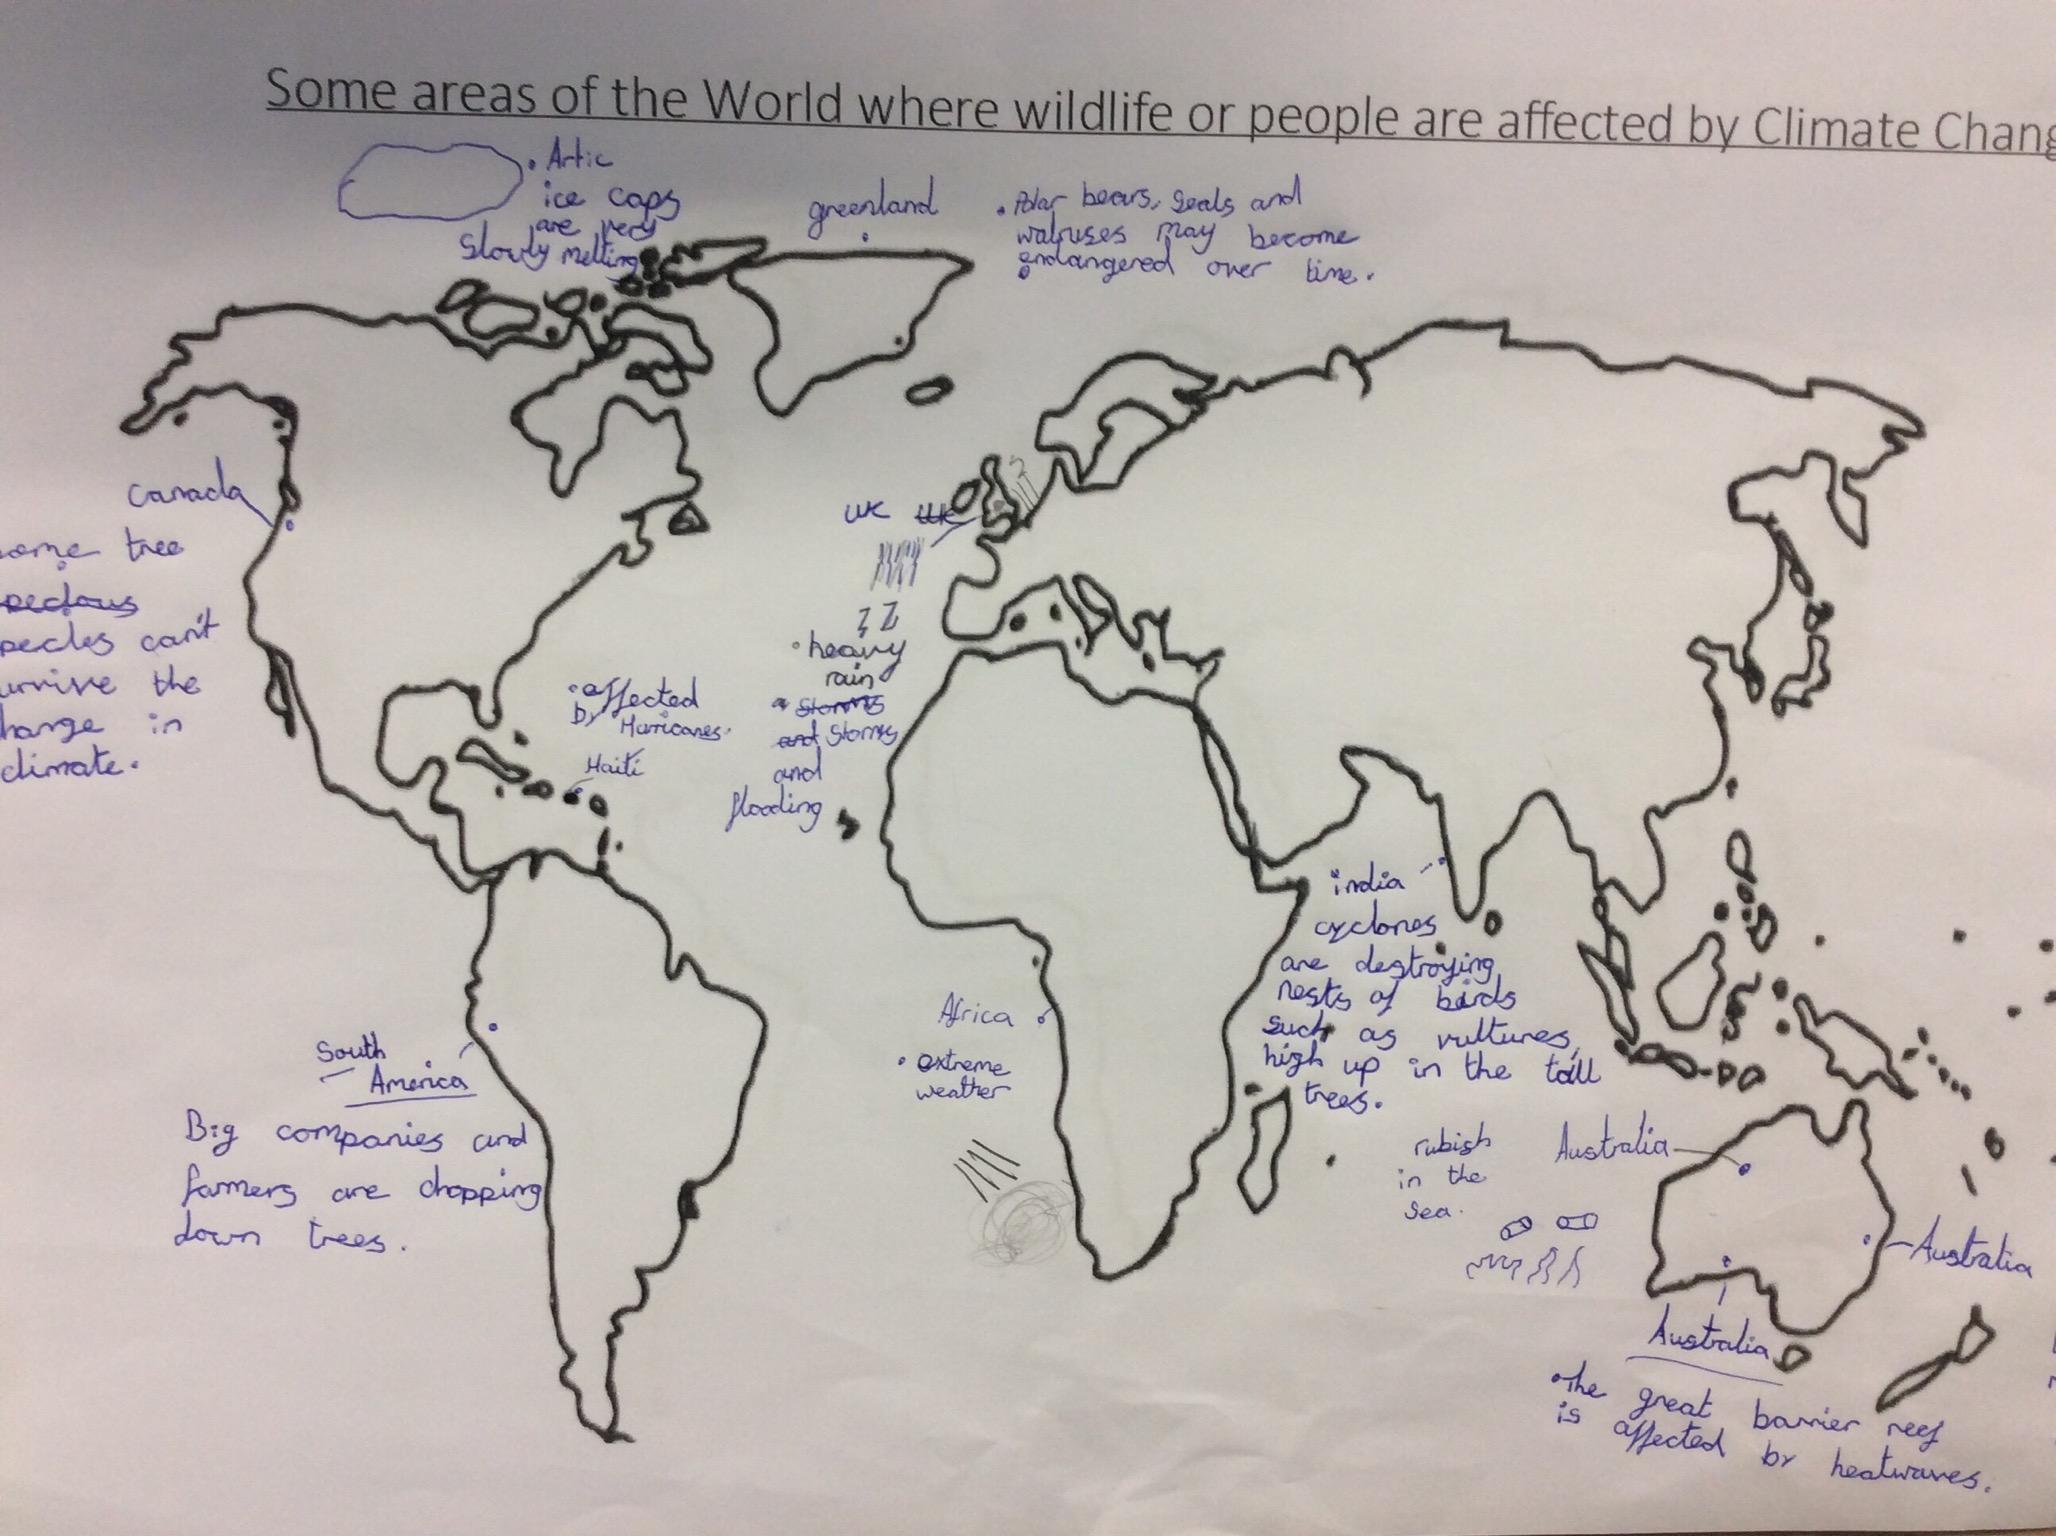 Some areas of the World where wildlife or people are affected by Climate Chang
• Artic
ice caps
are very
Slowly melting
greenland
• Polar bears, Seals and
walruses may become
endangered over time.
Canada
ome tree
pecious
pecies can't
urvive the
hange in
climate.
UK UK
• heavy
rain
• storms
and storms
and
flooding
• affected
by Hurricanes.
Haiti
india
cyclones
are destroying
nests of birds
such as vultures,
high up in the tall
trees.
Africa
• extreme
weather
South
America
Big companies and
farmers are chopping
down trees.
rubish
in the
sea.
Australia
Australia
Australia
• The great barrier reef
is affected by heatwaves.